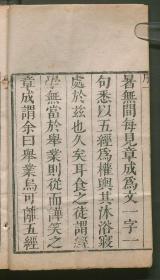 序
暑無間每見章成爲文一字一
句悉以五經爲權輿其沐浴寢
處於茲也久矣耳食之徒謂經
學無當於舉業則從而譁笑之
章成謂余曰舉業烏可離五經